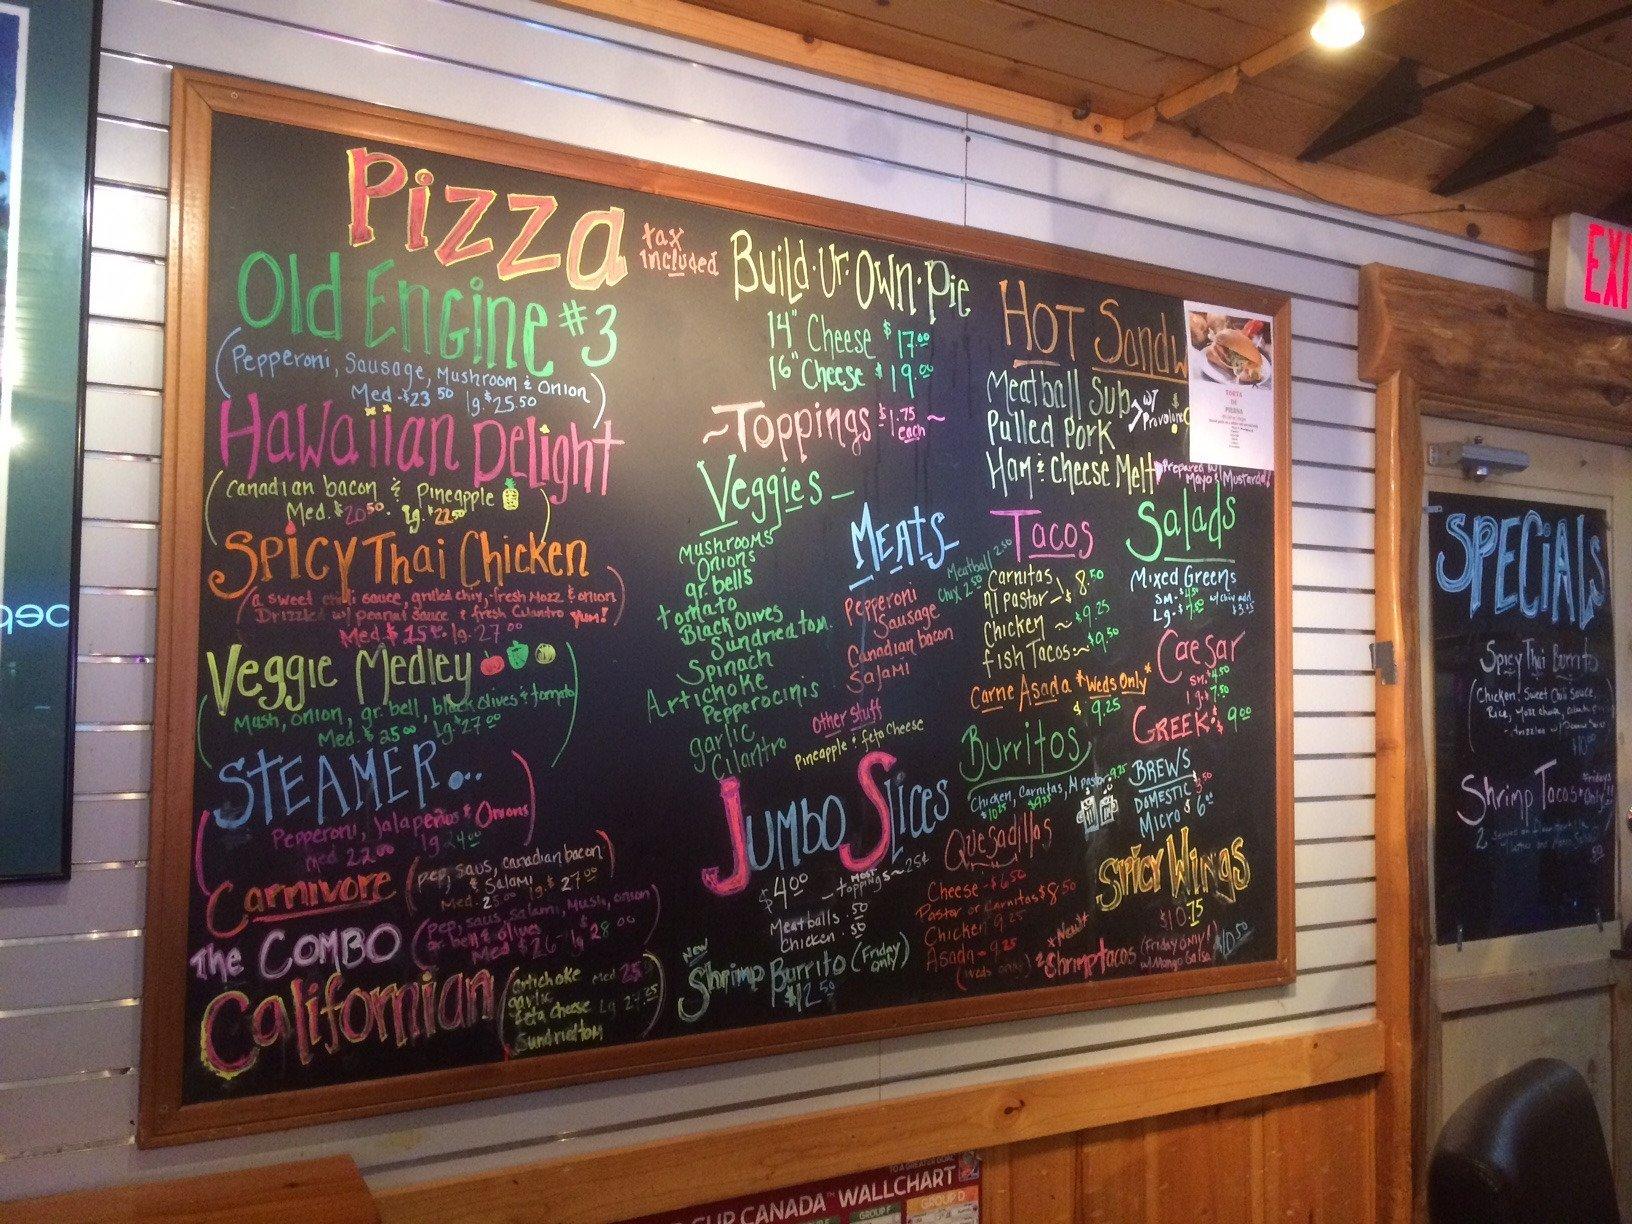 Pizza
tax
included
Old Engine #3
(Pepperoni, Sausage, Mushroom & Onion)
Med-$23.50 lg.$25.50
Hawaiian Delight
(Canadian bacon & Pineapple)
Med. $20.50 - lg. $22.50
Spicy Thai Chicken
(a sweet chili sauce, grilled chix, fresh Mozz & onion
Drizzled w/ peanut sauce & fresh Cilantro Yum!)
Med $ lg. 27.00
Veggie Medley
(Mush, onion, gr. bell, black olives & tomato)
Med. $25.00 lg. $27.00
STEAMER...
(Pepperoni, Jalapeños & Onions)
med 22.00 lg 24.00
Carnivore (pep, saus, canadian bacon
& Salami)
Med. 25.00 lg. $27.00
The COMBO (pep, saus, salami, mush, onion)
gr. bell & olives
Med $26- lg $28.00
Californian
(artichoke med 25
garlic
feta cheese lg
Sundriedtom)
Build·Ur·Own·Pie
14" Cheese $17.00
16" Cheese $19.00
~Toppings $1.75 each~
Veggies -
Mushrooms
Onions
gr. bells
tomato
Black Olives
Sundriedtom.
Spinach
Artichoke
Pepperocinis
garlic
Cilantro
MEATS
Meatball 2.50
Chix 2.50
Pepperoni
Sausage
Canadian bacon
Salami
Other Stuff
Pineapple & feta Cheese
Jumbo Slices
$4.00
- most toppings ~ 25¢
Meatballs .50
Chicken .50
NEW
Shrimp Burrito (Friday only)
$12.50
HOT Sandw
Meatball Sub
w/ Provolone
Pulled Pork
Ham & Cheese Melt
Prepared w/
Mayo & Mustard!
TORTA
DE
PIERNA
Tacos
Carnitas
Al Pastor - $8.50
Chicken ~ $9.25
fish Tacos ~ $9.50
Carne Asada *Weds Only*
$9.25
Burritos
Chicken, Carnitas, Al pastor 9.25
Quesadillas
Cheese - $6.50
Pastor or Carnitas $8.50
Chicken 9.25
Asada - 9.25
(Weds only)
Salads
Mixed Greens
sm.
Lg-
w/ chix add
Caesar
sm. $4.50
lg. 7.50
GREEK: $9.00
BREWS
DOMESTIC $3.50
Micro $6.00
SPICY WINGS
$10.75
*New!*
2 Shrimp tacos (Friday only!)
w/ Mango Salsa $10.50
EXI
SPECIALS
Spicy Thai Burrito
(Chicken, Sweet Chili Sauce,
Rice,
$10.00
Shrimp Tacos
Fridays
Only!!
2
CUP CANADA™ WALLCHART
TO A GREATER GOAL
GROUP F
GROUP D